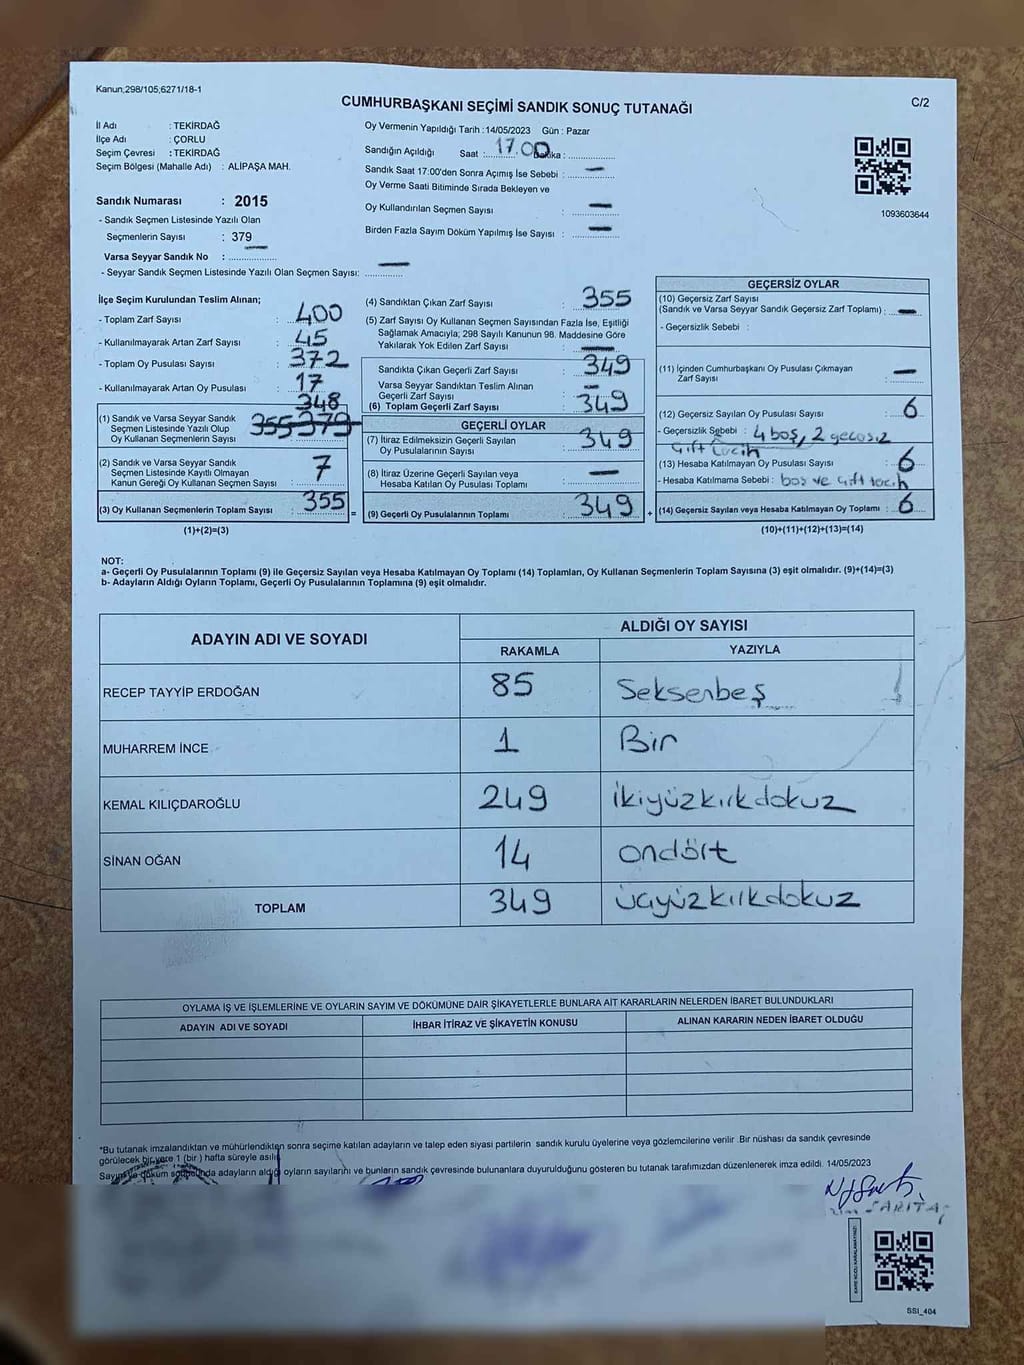 Kanun;298/105;6271/18-1
CUMHURBAŞKANI SEÇİMİ SANDIK SONUÇ TUTANAĞI
C/2
İl Adı : TEKİRDAĞ
İlçe Adı : ÇORLU
Seçim Çevresi : TEKİRDAĞ
Seçim Bölgesi (Mahalle Adı) : ALİPAŞA MAH.
Oy Vermenin Yapıldığı Tarih :14/05/2023 Gün : Pazar
Sandığın Açıldığı Saat :17.00
Sandık Saat 17:00'den Sonra Açımış İse Sebebi : —
Oy Verme Saati Bitiminde Sırada Bekleyen ve
Oy Kullandırılan Seçmen Sayısı : —
Birden Fazla Sayım Döküm Yapılmış İse Sayısı : —
1093603644
Sandık Numarası : 2015
- Sandık Seçmen Listesinde Yazılı Olan
Seçmenlerin Sayısı : 379
Varsa Seyyar Sandık No : —
- Seyyar Sandık Seçmen Listesinde Yazılı Olan Seçmen Sayısı: —
İlçe Seçim Kurulundan Teslim Alınan;
- Toplam Zarf Sayısı : 400
- Kullanılmayarak Artan Zarf Sayısı : 45
- Toplam Oy Pusulası Sayısı : 372
- Kullanılmayarak Artan Oy Pusulası : 17
348
(1) Sandık ve Varsa Seyyar Sandık
Seçmen Listesinde Yazılı Olup
Oy Kullanan Seçmenlerin Sayısı : 355 379
(2) Sandık ve Varsa Seyyar Sandık
Seçmen Listesinde Kayıtlı Olmayan
Kanun Gereği Oy Kullanan Seçmen Sayısı : 7
(3) Oy Kullanan Seçmenlerin Toplam Sayısı : 355 =
(1)+(2)=(3)
(4) Sandıktan Çıkan Zarf Sayısı : 355
(5) Zarf Sayısı Oy Kullanan Seçmen Sayısından Fazla İse, Eşitliği
Sağlamak Amacıyla; 298 Sayılı Kanunun 98. Maddesine Göre
Yakılarak Yok Edilen Zarf Sayısı : —
Sandıkta Çıkan Geçerli Zarf Sayısı : 349
Varsa Seyyar Sandıktan Teslim Alınan
Geçerli Zarf Sayısı : —
(6) Toplam Geçerli Zarf Sayısı : 349
GEÇERLİ OYLAR
(7) İtiraz Edilmeksizin Geçerli Sayılan
Oy Pusulasının Sayısı : 349
(8) İtiraz Üzerine Geçerli Sayılan veya
Hesaba Katılan Oy Pusulası Toplamı : —
(9) Geçerli Oy Pusulalarının Toplamı : 349 +
GEÇERSİZ OYLAR
(10) Geçersiz Zarf Sayısı
(Sandık ve Varsa Seyyar Sandık Geçersiz Zarf Toplamı) : —
- Geçersizlik Sebebi :
(11) İçinden Cumhurbaşkanı Oy Pusulası Çıkmayan
Zarf Sayısı : —
(12) Geçersiz Sayılan Oy Pusulası Sayısı : 6
- Geçersizlik Sebebi : 4 boş, 2 gecesiz
Çift tercih
(13) Hesaba Katılmayan Oy Pusulası Sayısı : 6
- Hesaba Katılmama Sebebi : boş ve çift tercih
(14) Geçersiz Sayılan veya Hesaba Katılmayan Oy Toplamı : 6
(10)+(11)+(12)+(13)=(14)
NOT:
a- Geçerli Oy Pusulalarının Toplamı (9) ile Geçersiz Sayılan veya Hesaba Katılmayan Oy Toplamı (14) Toplamları, Oy Kullanan Seçmenlerin Toplam Sayısına (3) eşit olmalıdır. (9)+(14)=(3)
b- Adayların Aldığı Oyların Toplamı, Geçerli Oy Pusulalarının Toplamına (9) eşit olmalıdır.
ADAYIN ADI VE SOYADI
ALDIĞI OY SAYISI
RAKAMLA YAZIYLA
RECEP TAYYİP ERDOĞAN 85 Seksenbeş
MUHARREM İNCE 1 Bir
KEMAL KILIÇDAROĞLU 249 ikiyüzkırkdokuz
SİNAN OĞAN 14 ondört
TOPLAM 349 üçyüzkırkdokuz
OYLAMA İŞ VE İŞLEMLERİNE VE OYLARIN SAYIM VE DÖKÜMÜNE DAİR ŞİKAYETLERLE BUNLARA AİT KARARLARIN NELERDEN İBARET BULUNDUKLARI
ADAYIN ADI VE SOYADI İHBAR İTİRAZ VE ŞİKAYETİN KONUSU ALINAN KARARIN NEDEN İBARET OLDUĞU
*Bu tutanak imzalandıktan ve mühürlendikten sonra seçime katılan adayların ve talep eden siyasi partilerin sandık kurulu üyelerine veya gözlemcilerine verilir .Bir nüshası da sandık çevresinde
görülecek bir yere 1 (bir ) hafta süreyle asılır.
Sayım ve döküm adayların aldığı oyların sayılarını ve bunların sandık çevresinde bulunanlara duyurulduğunu gösteren bu tutanak tarafımızdan düzenlenerek imza edildi. 14/05/2023
SARITAŞ
SSI_404